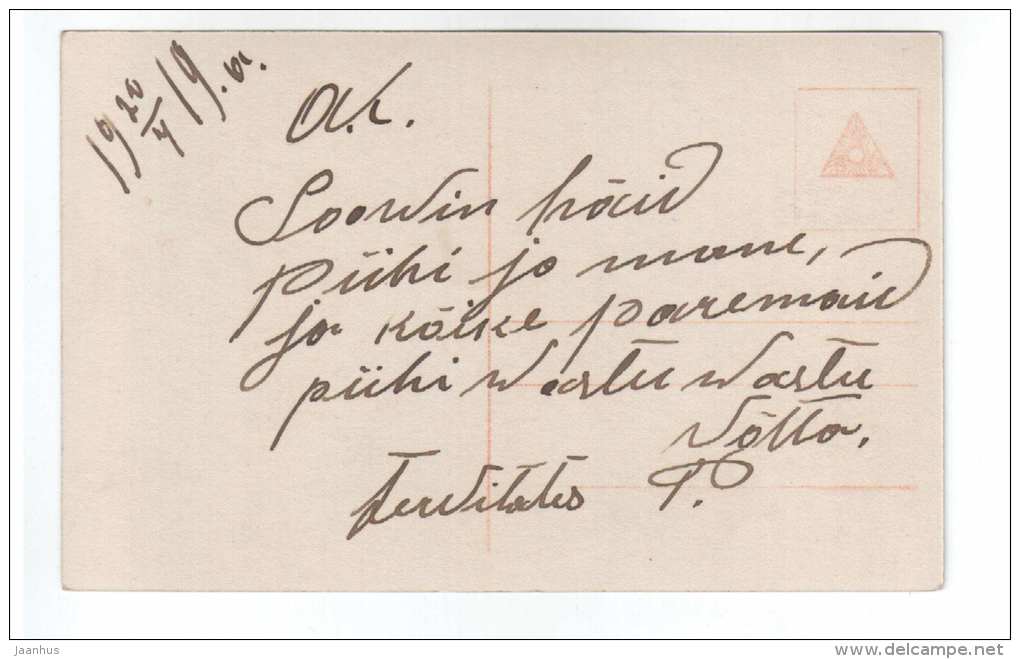 19 20/4 19. a.
A. L.
Soovin häid
Pühi ja mune,
ja kõike paremaid
pühi wastu wastu
võtta.
Tervitates P.
Jaanhus
www.delcampe.net